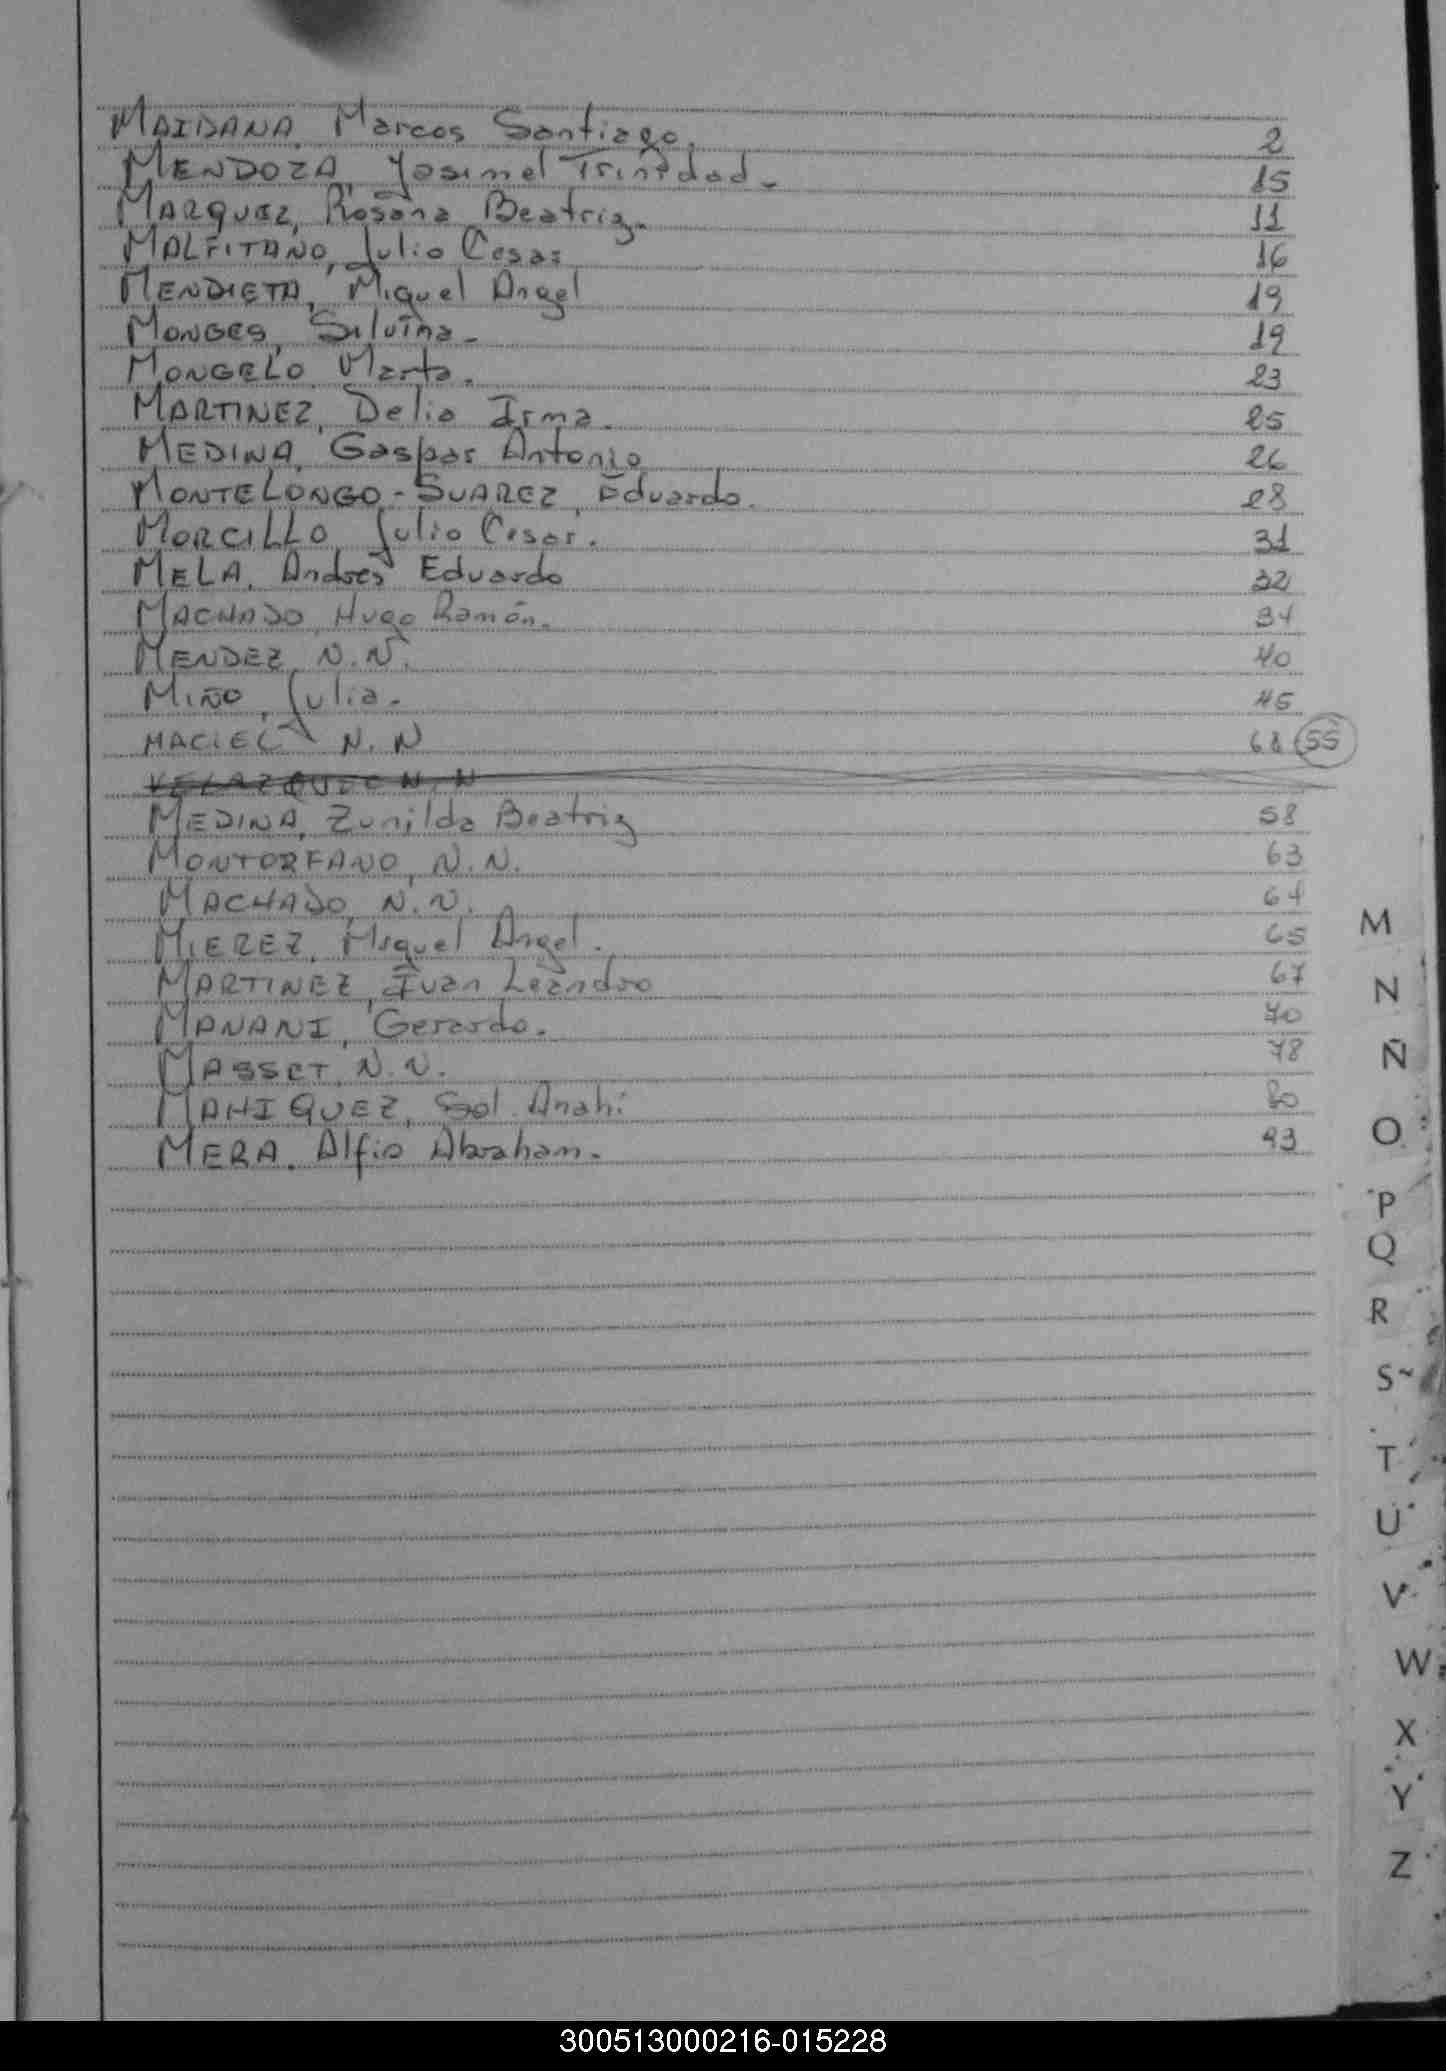 MAIDANA, Marcos Santiago. 2
MENDOZA, Yasimel Trinidad. 15
MARQUEZ, Rosana Beatriz. 11
MALFITANO, Julio Cesar 16
MENDIETA, Miguel Angel 19
MONGES, Silvina. 19
MONGELO, Marta. 23
MARTINEZ, Delia Irma. 25
MEDINA, Gaspar Antonio 26
MONTELONGO-SUAREZ, Eduardo. 28
MORCILLO, Julio Cesar. 31
MELA, Andres Eduardo 32
MACHADO, Hugo Ramón. 34
MENDEZ, N.N. 40
MIÑO, Julia. 45
MACIEL N.N 68 55
VELAZQUEZ N.N
MEDINA, Zunilda Beatriz 58
MONTORFANO, N.N. 63
MACHADO, N.N. 64
MIEREZ, Miguel Angel. 65
MARTINEZ, Ivan Leandro 67
MANANI, Gerardo. 70
MASSET, N.N. 78
MAHIQUEZ, Sol Anahi 80
MERA, Alfio Abraham. 93
M
N
Ñ
O
P
Q
R
S
T
U
V
W
X
Y
Z
300513000216-015228